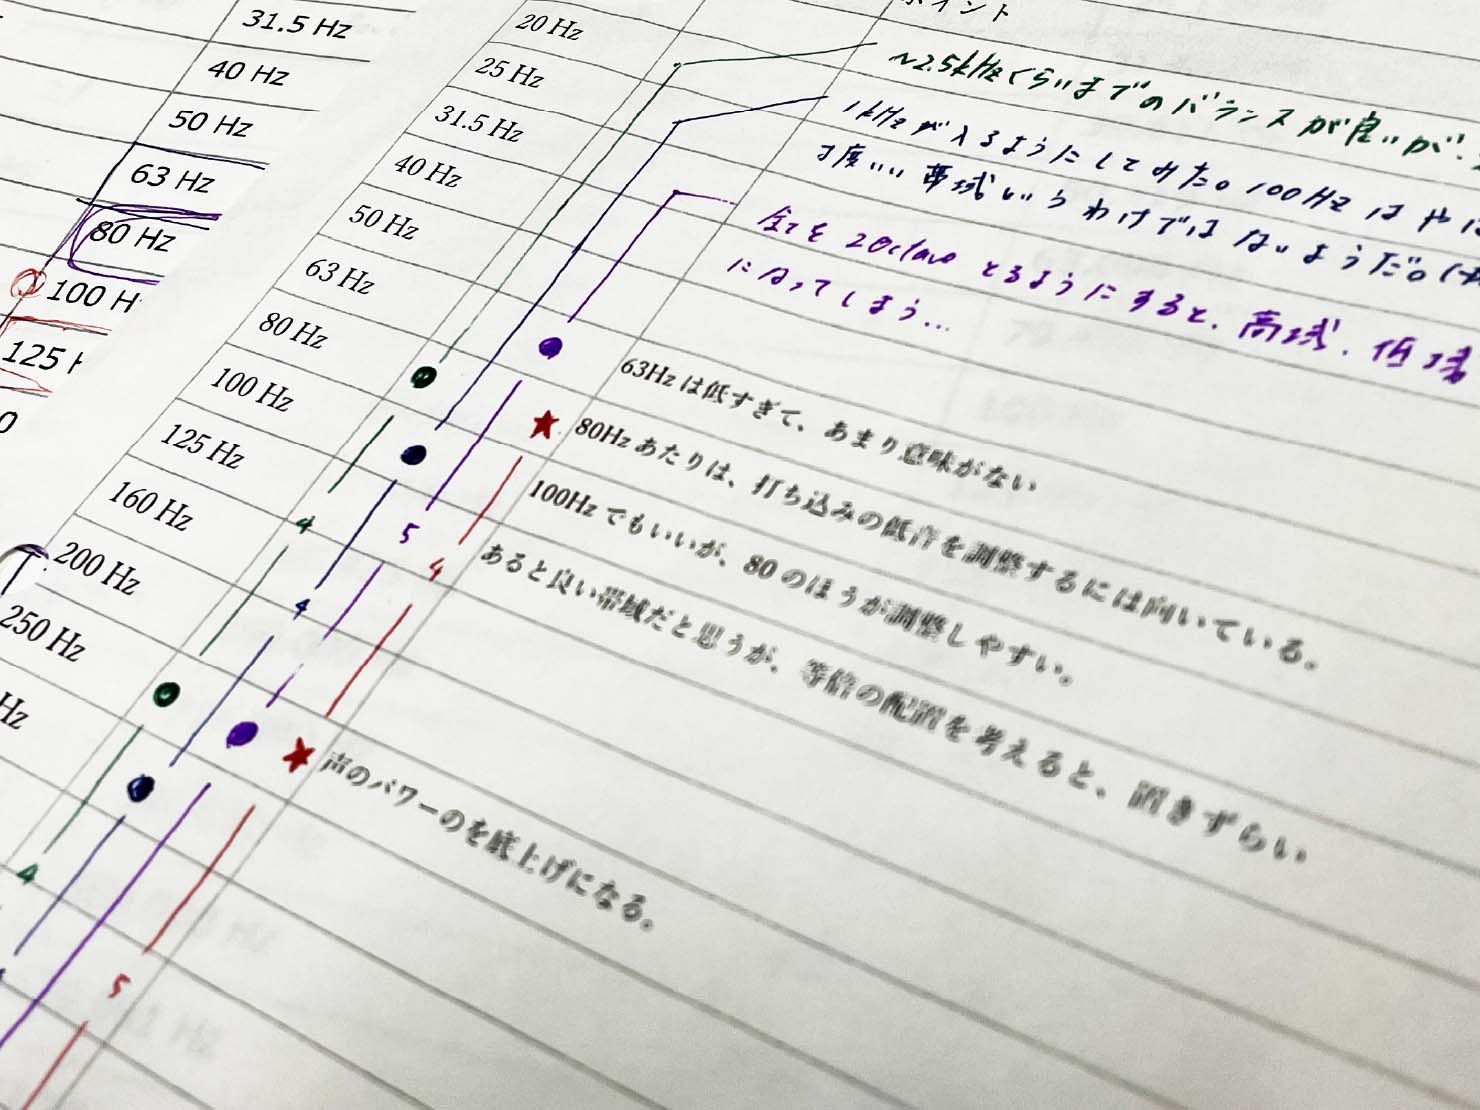 31.5 Hz
40 Hz
50 Hz
63 Hz
80 Hz
100 H
125 H
0
イント
20 Hz
25 Hz
31.5 Hz
40 Hz
50 Hz
63 Hz
80 Hz
100 Hz
125 Hz
160 Hz
200 Hz
250 Hz
Hz
~2.5kHzくらいまでのバランスが良いが、
1kHzが入るようにしてみた。100Hzはや
丁度いい帯域というわけではないようだ。(
全てを2Octaveとるようにすると、高域、低域
になってしまう…
63Hzは低すぎて、あまり意味がない
80Hzあたりは、打ち込みの低音を調整するには向いている。
100Hzでもいいが、80のほうが調整しやすい。
あると良い帯域だと思うが、等倍の配置を考えると、置きずらい
声のパワーのを底上げになる。
4
5
4
4
4
5